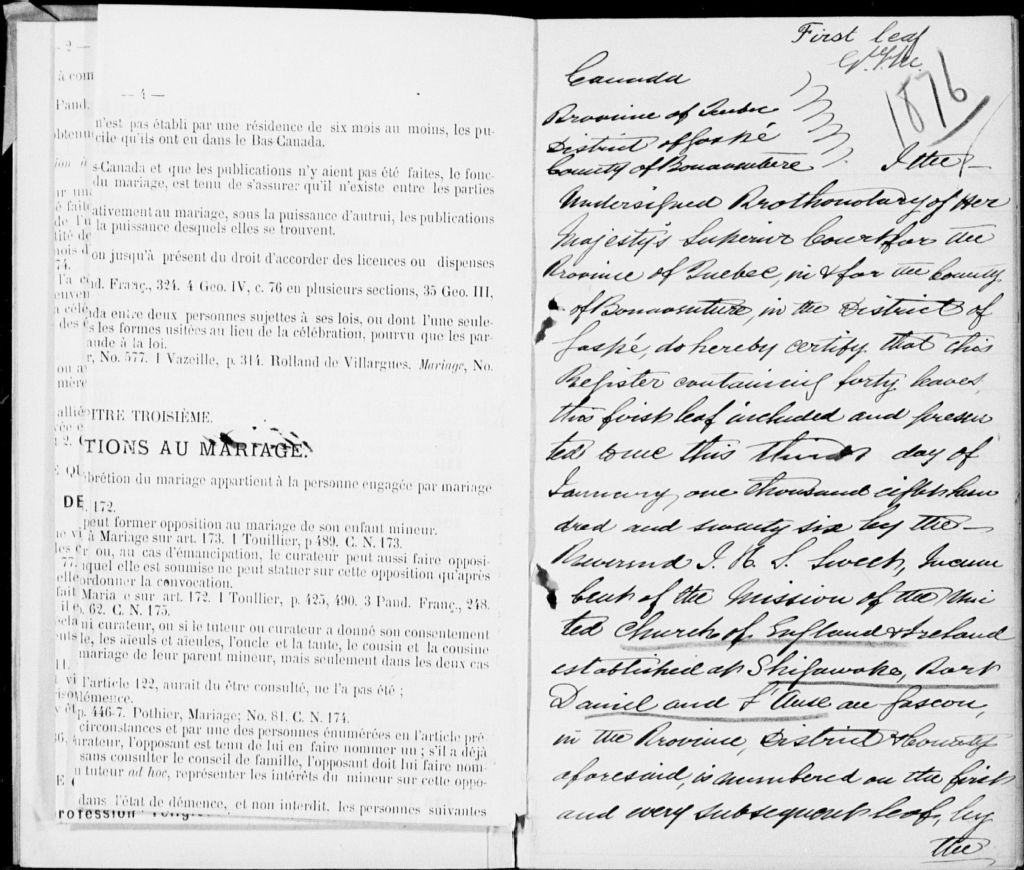 — 2 —
à com
Pand.
obtenu
— 4 —
n'est pas établi par une résidence de six mois au moins, les pu-
cile qu'ils ont eu dans le Bas-Canada.
s-Canada et que les publications n'y aient pas été faites, le fonc-
du mariage, est tenu de s'assurer qu'il n'existe entre les parties
ativement au mariage, sous la puissance d'autrui, les publications
la puissance desquels elles se trouvent.
on jusqu'à présent du droit d'accorder des licences ou dispenses
nd. Franç., 324. 4 Geo. IV, c. 76 en plusieurs sections, 35 Geo. III,
da entre deux personnes sujettes à ses lois, ou dont l'une seule-
s les formes usitées au lieu de la célébration, pourvu que les par-
aude à la loi.
r, No. 577. 1 Vazeille, p. 314. Rolland de Villargues. Mariage, No.
ITRE TROISIÈME.
TIONS AU MARIAGE.
brétion du mariage appartient à la personne engagée par mariage
172.
peut former opposition au mariage de son enfant mineur.
à Mariage sur art. 173. 1 Touillier, p 489. C. N. 173.
ou, au cas d'émancipation, le curateur peut aussi faire opposi-
quel elle est soumise ne peut statuer sur cette opposition qu'après
ordonner la convocation.
e sur art. 172. 1 Toullier, p. 425, 490. 3 Pand. Franç., 248.
62. C. N. 175.
ni curateur, ou si le tuteur ou curateur a donné son consentement
le, les aïeuls et aïeules, l'oncle et la tante, le cousin et la cousine
mariage de leur parent mineur, mais seulement dans les deux cas
l'article 122, aurait du être consulté, ne l'a pas été ;
démence.
p. 446-7. Pothier, Mariage; No. 81. C. N. 174.
circonstances et par une des personnes énumérées en l'article pré-
urateur, l'opposant est tenu de lui en faire nommer un ; s'il a déjà
sans consulter le conseil de famille, l'opposant doit lui faire nom-
n tuteur ad hoc, représenter les intérêts du mineur sur cette oppo-
dans l'état de démence, et non interdit, les personnes suivantes
First leaf
1876
Canada
Province of Quebec
District of Gaspé
County of Bonaventure I the
Undersigned Prothonotary of Her
Majesty's Superior Court for the
Province of Quebec, in & for the County
of Bonaventure, in the District of
Gaspé, do hereby certify that this
Register containing forty leaves
this first leaf included and presen
ted to me this third day of
January, one thousand eight hun
dred and seventy six by the
Reverend J. H. S. Sweet, Incum
bent of the Mission of the Uni
ted Church of England & Ireland
established at Shigawake, Port
Daniel and L'Anse au Gascon,
in the Province, District & County
aforesaid, is numbered on the first
and every subsequent leaf, by
the